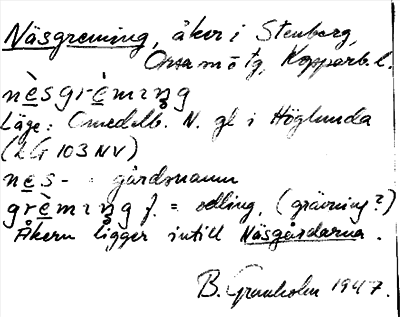 Näsgremning, åker i Stenberg,
Orsa m o tg, Kopparb. l.
nèsgrèmıŋg
Läge: Omedelb. N. gl i Höglunda
(LG 103 NV)
nes- = gårdsnamn
grèmıŋg f. = odling, (grävning?)
Åkern ligger intill Näsgårdarna.
B. Granholm 1947.